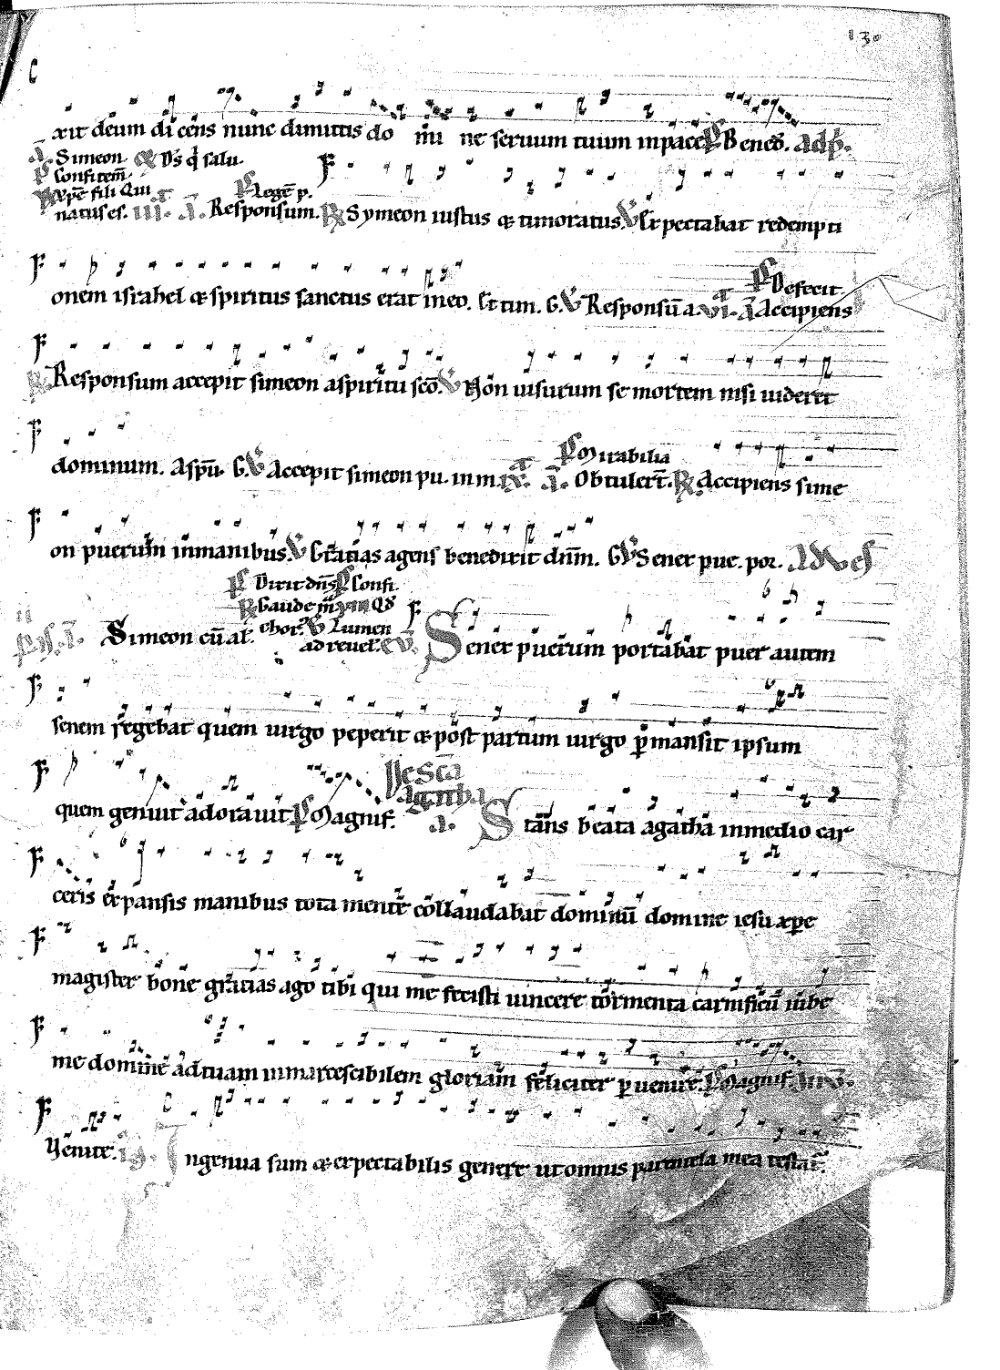 130
xit deum dicens nunc dimittis do mi ne seruum tuum inpace P̄s Bened. adp̄.
Ā. Simeon. Ds q̄ salu.
P̄ Confitem̄. P̄s
xp̄e fili Qui Legē p.
natus es. III. Ā. Responsum. R̄ Symeon iustus & timoratus. V̄ Expectabat redempti
onem israhel & spiritus sanctus erat ineo. Et tim. G. V̄ Responsū a.
P̄s Defecit.
VI. Ā Accipiens
R̄ Responsum accepit simeon aspiritu sc̄o. V̄ Non uisurum se mortem nisi uideret
dominum. Aspū. G. V̄ Accepit simeon pu. in m.
P̄s Mirabilia
IX. Ā. Obtuler̄t. R̄ Accipiens sime
on puerum inmanibus. V̄ Gratias agens benedixit dn̄m. G V̄ Senex pue. por. Ad Ves
P̄s Dixit dn̄s P̄s Confi.
R̄ Gaude m̄
Ps. Ā. Simeon cū al. chor. V̄ Lumen
ad reuel. eū. Senex puerum portabat puer autem
senem regebat quem uirgo peperit & post partum uirgo p̄mansit ipsum
quem genuit adorauit P̄s Magnif.
De Scā
Agatha
Ā. Stans beata agatha inmedio car
ceris expansis manibus tota mente collaudabat dominū domine iesu xp̄e
magister bone gratias ago tibi qui me fecisti uincere tormenta carnificū iube
me domine adtuam inmarcescibilem gloriam feliciter p̄uenire. P̄s Magnif. Inū.
Venite. Ingenua sum & expectabilis genere ut omnis parentela mea testat̄.